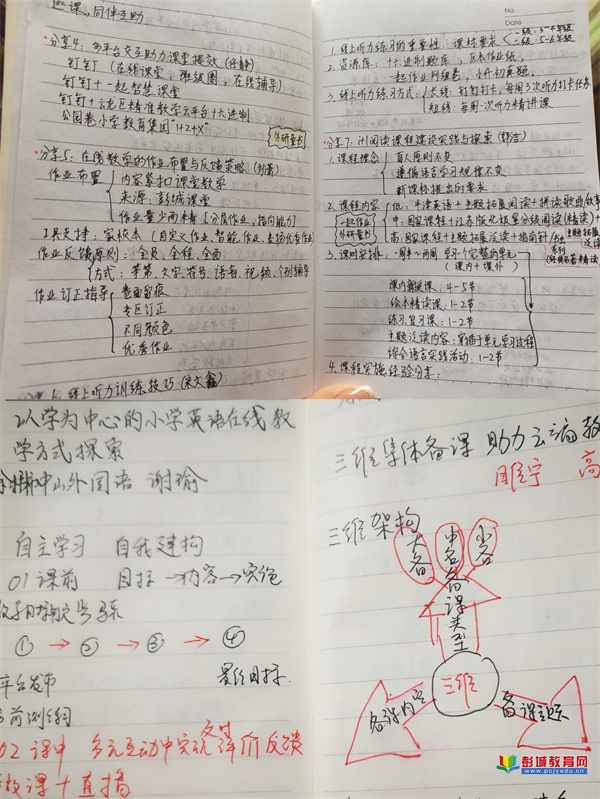 课,同伴互助
分享4:多平台交互助力课堂提效(任静)
钉钉(在线课堂,班级圈,在线辅导)
钉钉+一起智慧课堂
钉钉+云龙区精准教学云平台+六进制
公园巷小学教育集团"1+2+X"
外研童书
分享5:在线教学的作业布置与反馈策略
作业布置
内容紧扣课堂教学
来源:彭城课堂
作业量少而精【分层作业,指向能力】
工具支持:家校本(自定义作业,智能作业,查扬优秀作业)
作业反馈原则:全员、全程、全面
方式:等第、文字、符号、语音、视频、个别辅导
作业订正指导
卷面留痕
专区订正
不同颜色
优秀作业
线上听力训练技巧
No.
Date
1.线上听力练习的重要性 课标要求
一级:3-4年级
二级:5-6年级
2.资源库:十六进制题库,区本作业纸,
一起作业网组卷,小升初真题,
3.线上听力练习方式:
长线:钉钉打卡,每周3次听力打卡任务
短线:每周一次听力精讲课
分享7:小阅读课程建设实践与探索
1.课程理念
育人原则不变
遵循语言学习规律不变
新课标提出的要求
2.课程内容
一起作业
外研童书
低:牛津英语+主题拓展阅读+拼读歌曲/故事
中:国家课程+江苏版北极星分级阅读(精读)+
高:国家课程+主题拓展泛读+指南针
主题拓展泛读
系列
(经典名著精读)
3.课时安排:一周半~两周 学习个完整的单元
(课内+课外)
课内新授课:4-5节
绘本精读课:1-2节
练习复习课:1-2节
主题泛读内容:穿插于单元学习过程
综合语言实践活动:1-2节
4.课程实施经验分享:
以学为中心的小学英语在线教
学方式探索
中山外国语 谢瑜
自主学习 自我建构
01 课前 目标→内容→实施
① → ② → ③ → ④
平台发布
最终目标
前测
02 课中 多元互动中实现 评价反馈
微课+直播
三维集体备课 助力云端教
周宁 高
三维架构
大备
中备
小备
备课类型
三维
备课内容
备课主题
彭城教育网
www.pcjyedu.cn